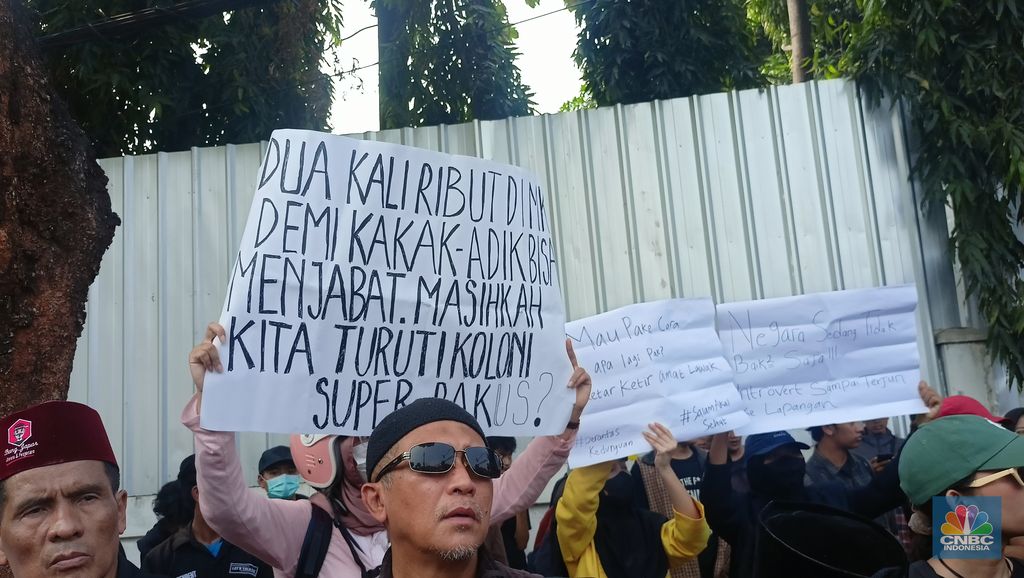 DUA KALI RIBUT DI MK
DEMI KAKAK-ADIK BISA
MENJABAT. MASIHKAH
KITA TURUTI KOLONI
SUPER RAKUS?
Mau Pake Cara
apa lagi Pak?
Ketar Ketir amat Lawak
#Berantas
Kedunguan
Negara Sedang Tidak
Baik2 Saja!!!
Introvert Sampai Terjun
Ke Lapangan
CNBC
INDONESIA